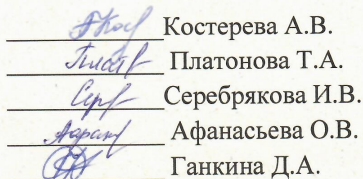 Костерева А.В.
Платонова Т.А.
Серебрякова И.В.
Афанасьева О.В.
Ганкина Д.А.